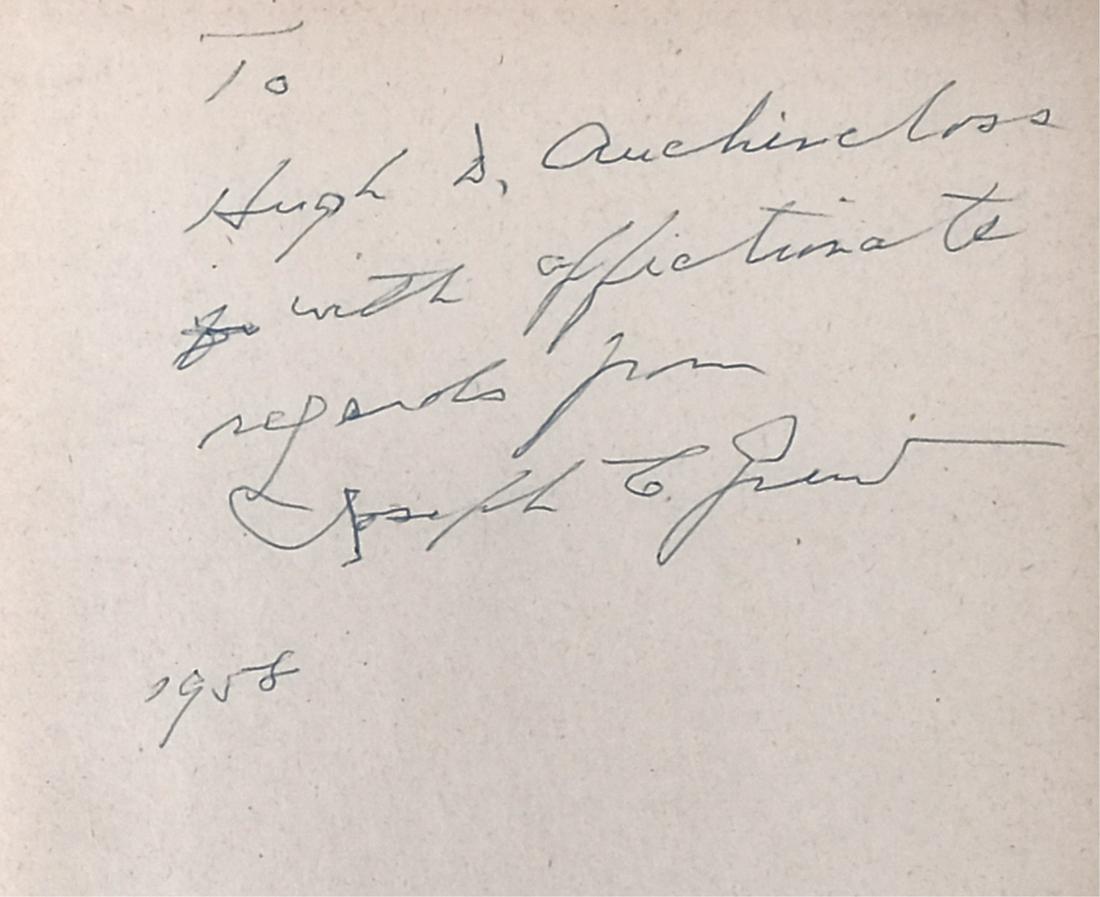 To
Hugh D. Auchincloss
with affectionate
regards from
Joseph C. Grew
1958